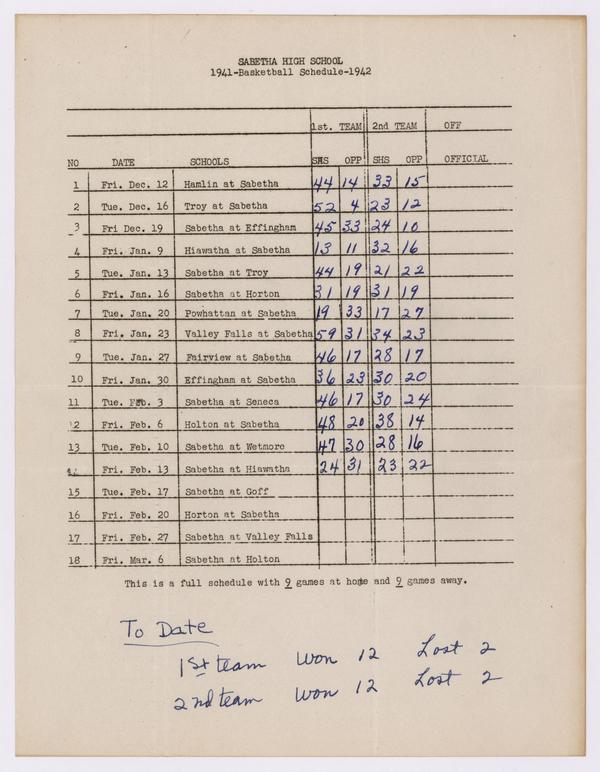 SABETHA HIGH SCHOOL
1941-Basketball Schedule-1942
1st. TEAM 2nd TEAM OFF
NO DATE SCHOOLS SHS OPP SHS OPP OFFICIAL
1 Fri. Dec. 12 Hamlin at Sabetha 44 14 33 15
2 Tue. Dec. 16 Troy at Sabetha 52 4 23 12
3 Fri Dec. 19 Sabetha at Effingham 45 33 24 10
4 Fri. Jan. 9 Hiawatha at Sabetha 13 11 32 16
5 Tue. Jan. 13 Sabetha at Troy 44 19 21 22
6 Fri. Jan. 16 Sabetha at Horton 31 19 31 19
7 Tue. Jan. 20 Powhattan at Sabetha 19 33 17 27
8 Fri. Jan. 23 Valley Falls at Sabetha 59 31 34 23
9 Tue. Jan. 27 Fairview at Sabetha 46 17 28 17
10 Fri. Jan. 30 Effingham at Sabetha 36 23 30 20
11 Tue. Feb. 3 Sabetha at Seneca 46 17 30 24
12 Fri. Feb. 6 Holton at Sabetha 48 20 38 14
13 Tue. Feb. 10 Sabetha at Wetmore 47 30 28 16
Fri. Feb. 13 Sabetha at Hiawatha 24 31 23 22
15 Tue. Feb. 17 Sabetha at Goff
16 Fri. Feb. 20 Horton at Sabetha
17 Fri. Feb. 27 Sabetha at Valley Falls
18 Fri. Mar. 6 Sabetha at Holton
This is a full schedule with 9 games at home and 9 games away.
To Date
1st team Won 12 Lost 2
2nd team Won 12 Lost 2